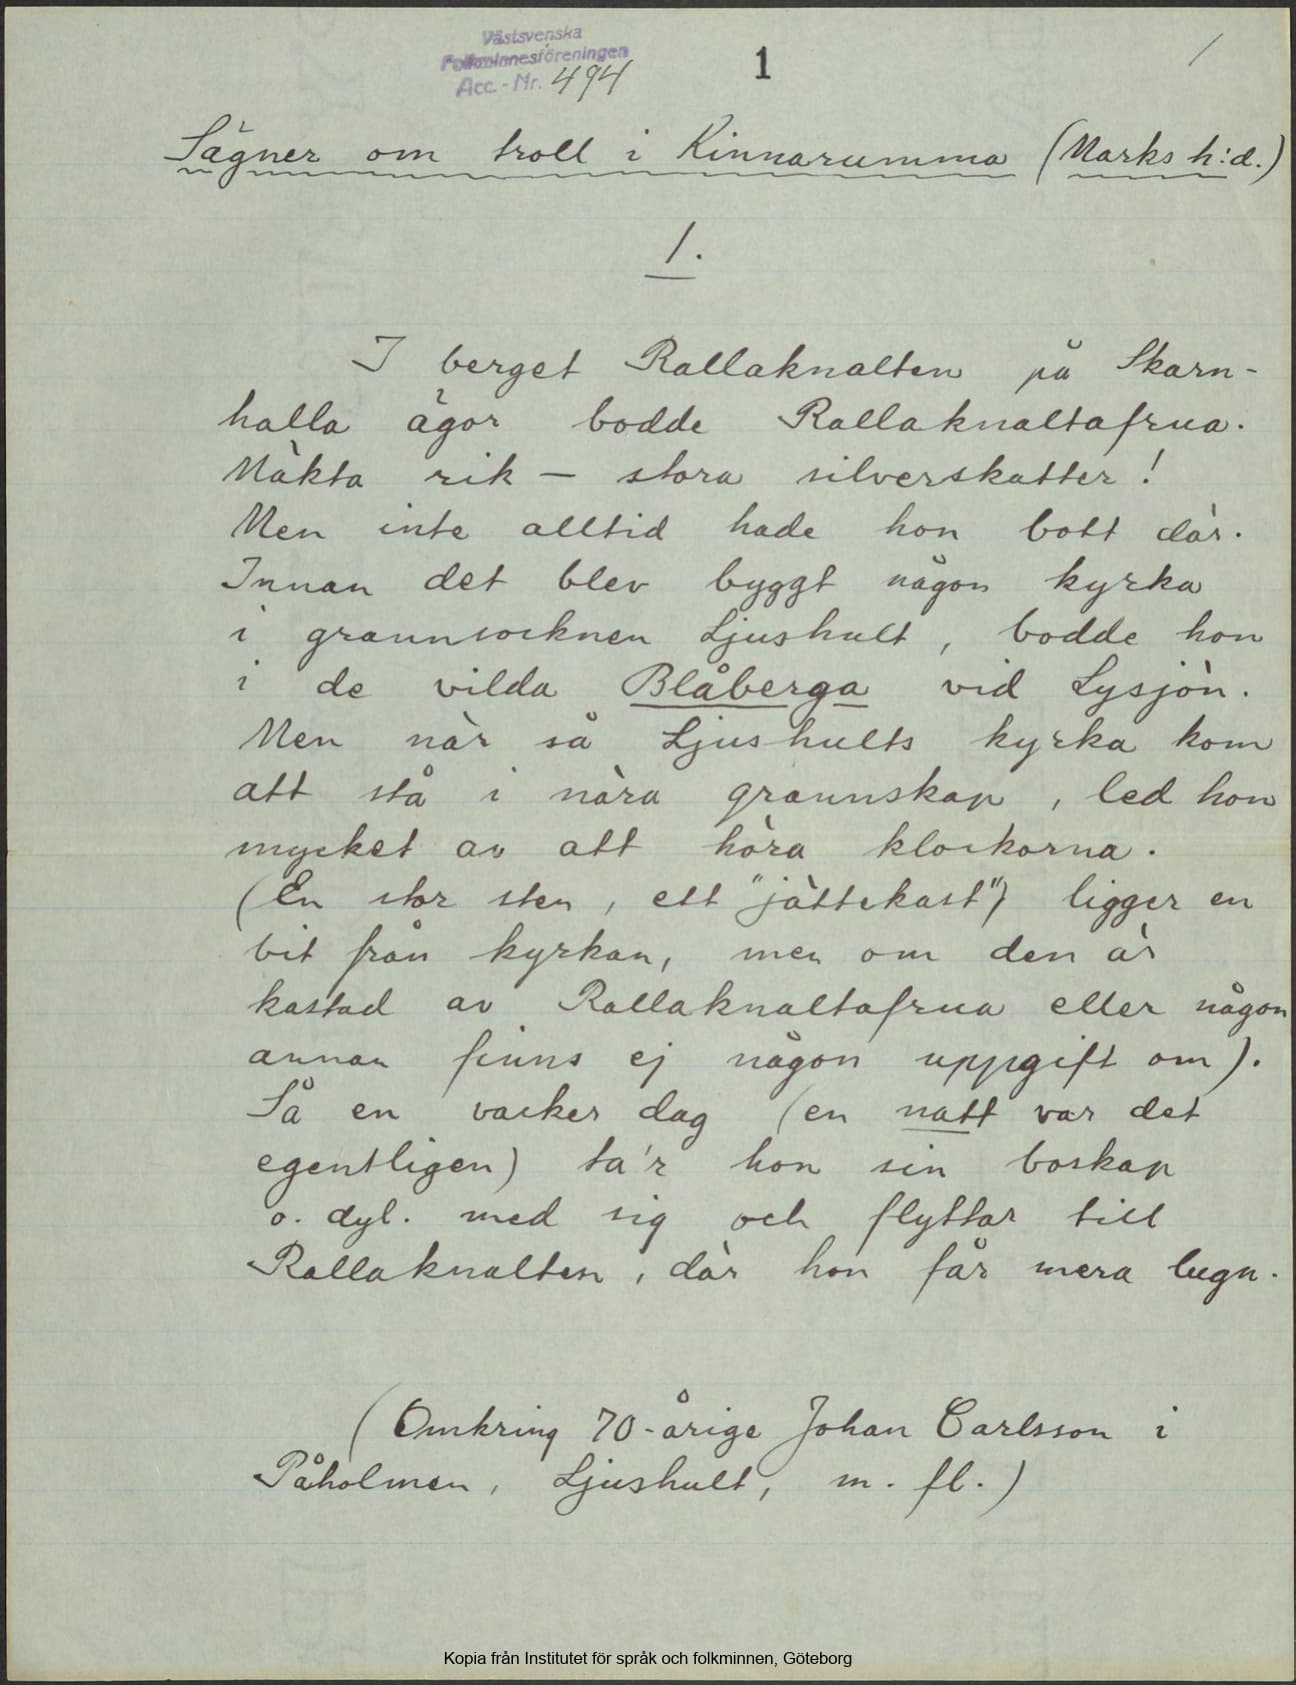 Västsvenska
Folkminnesföreningen
Acc.-Nr. 494
1
/
Sägner om troll i Kinnarumma (Marks h:d.)
1.
I berget Rallaknalten på Skarn-
halla ägor bodde Rallaknaltafrua.
Mäkta rik – stora silverskatter!
Men inte alltid hade hon bott där.
Innan det blev byggt någon kyrka
i grannsocknen Ljushult, bodde hon
i de vilda Blåberga vid Lysjön.
Men när så Ljushults kyrka kom
att stå i nära grannskap, led hon
mycket av att höra klockorna.
(En stor sten, ett "jättekast") ligger en
bit från kyrkan, men om den är
kastad av Rallaknaltafrua eller någon
annan finns ej någon uppgift om).
Så en vacker dag (en natt var det
egentligen) ta'r hon sin boskap
o. dyl. med sig och flyttar till
Rallaknalten, där hon får mera lugn.
(Omkring 70-årige Johan Carlsson i
Påholmen, Ljushult, m. fl.)
Kopia från Institutet för språk och folkminnen, Göteborg